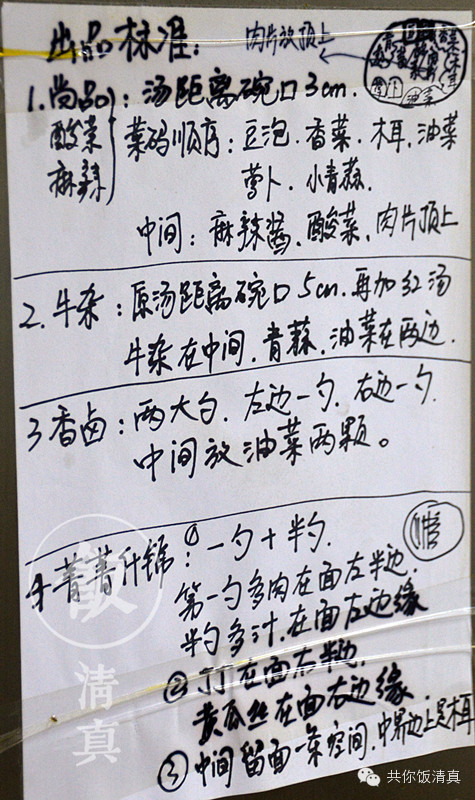 出品标准: 肉片放顶上
1.尚品: 汤距离碗口3cm.
酸菜
麻辣
菜码顺序: 豆泡.香菜.木耳.油菜
萝卜.小青蒜.
中间: 麻辣酱.酸菜.肉片顶上
2.牛杂: 原汤距离碗口5cm.再加红汤
牛杂在中间.青蒜.油菜在两边.
3香卤: 两大勺.左边一勺.右边一勺.
中间放油菜两颗。
4菁菁什锦: ①一勺+半勺.
第一勺多肉在面左半边.
半勺多汁.在面左边缘
②丁在面右半边.
黄瓜丝在面右边缘.
③中间留面一条空间.中边上是木耳
饭
清真
共你饭清真